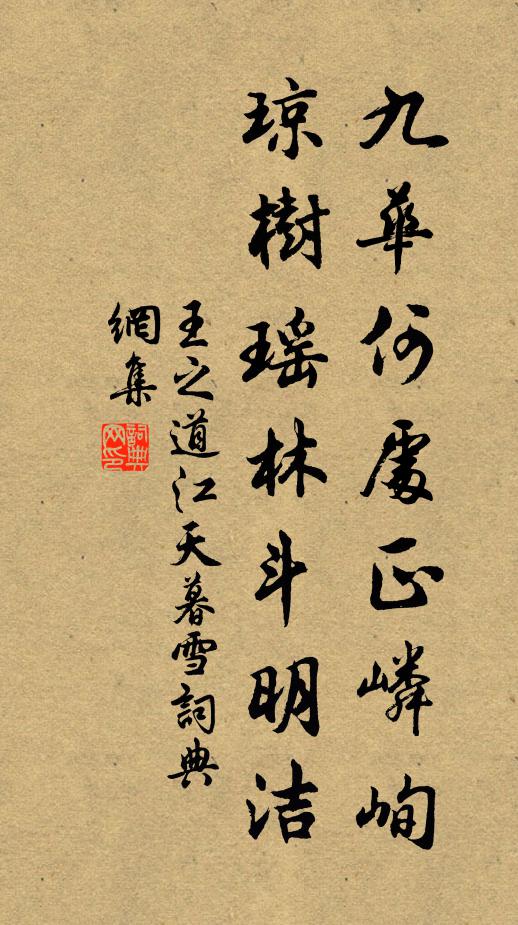 九華何處正嶙峋
琼樹瑶林斗明洁
王之道江天暮雪詞典
網集
詞典
网印